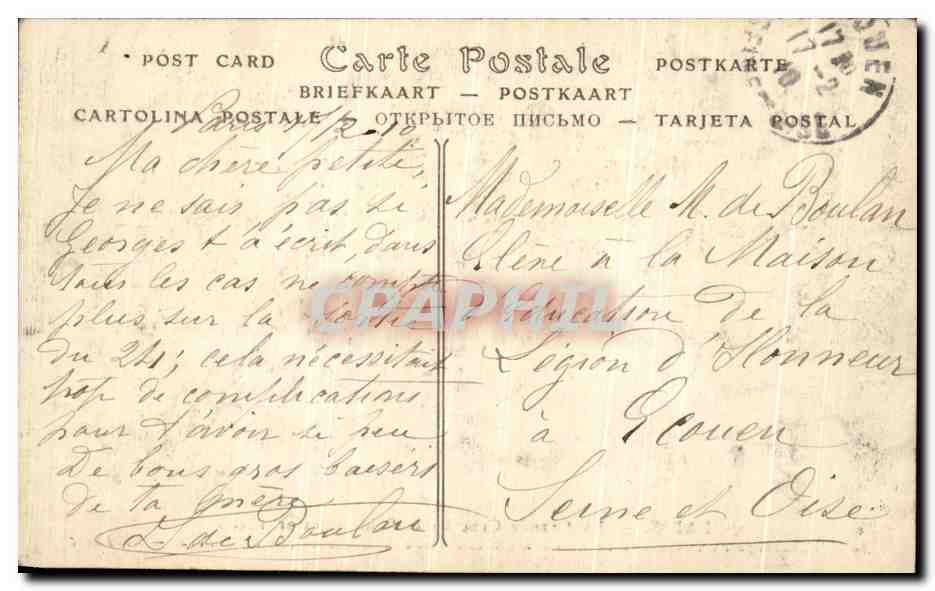 POST CARD Carte Postale POSTKARTE
BRIEFKAART — POSTKAART
CARTOLINA POSTALE — ОТКРЫТОЕ ПИСЬМО — TARJETA POSTAL
Paris 2 10
Ma chère petite,
Je ne sais pas si
Georges t'a écrit, dans
tous les cas ne compte
plus sur la sortie
du 24; cela nécessitait
trop de complications
pour t'avoir si peu
De bons gros baisers
de ta mère
L de Boulan
Mademoiselle M. de Boulan
Elève à la Maison
d'éducation de la
Légion d'Honneur
à Ecouen
Seine et Oise
17 -2
10
OUEN
CPAPHIL